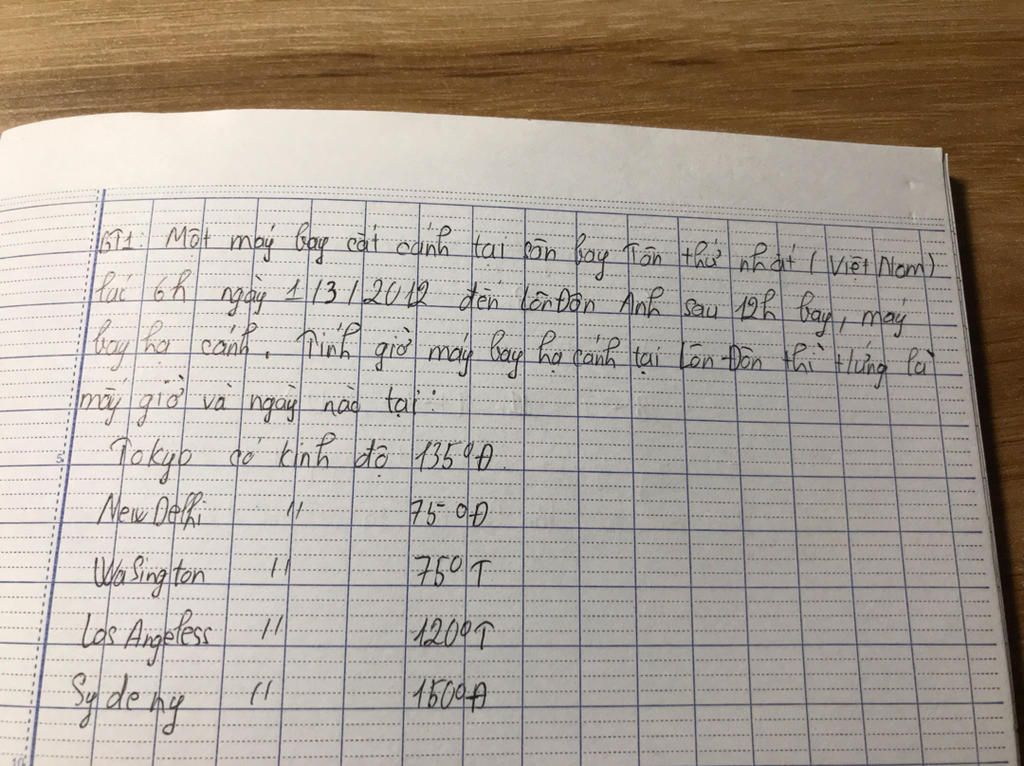 BT1: Một máy bay cất cánh tại sân bay Tân thứ nhất (Việt Nam)
lúc 6h ngày 1/3/2012 đến LônĐôn Anh sau 12h bay, máy
bay hạ cánh. Tính giờ máy bay hạ cánh tại Lôn Đôn thì tứng là
mấy giờ và ngày nào tại:
Tokyo có kinh độ 135°Đ
New Delhi " 75°Đ
WaSington " 75°T
Los Angeless " 120°T
Sydeny " 150°Đ